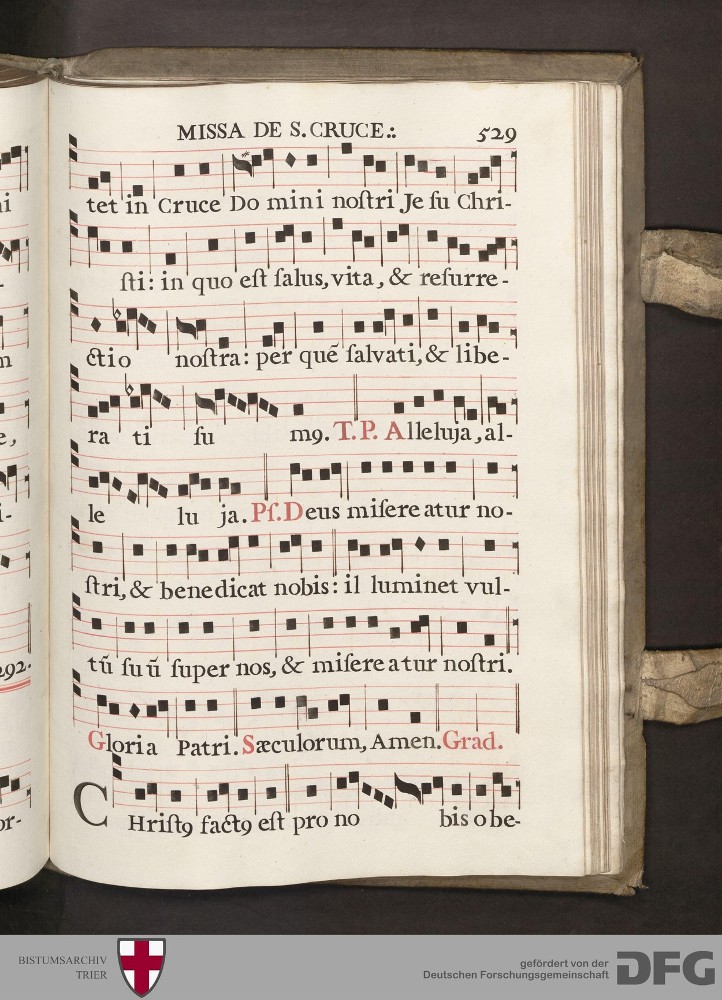 MISSA DE S. CRUCE.:. 529
tet in Cruce Do mini noſtri Je ſu Chri-
ſti: in quo eſt ſalus, vita, & reſurre-
ctio noſtra: per quē ſalvati, & libe-
ra ti ſu m9. T.P. Alleluja, al-
le lu ja. Pſ. Deus miſere atur no-
ſtri, & benedicat nobis: il luminet vul-
tū ſuū ſuper nos, & miſere atur noſtri.
Gloria Patri. Sæculorum, Amen. Grad.
CHriſt9 fact9 eſt pro no bis obe-
ni
-
m
e,
i-
292.
or-
BISTUMSARCHIV
TRIER
gefördert von der
Deutschen Forschungsgemeinschaft
DFG